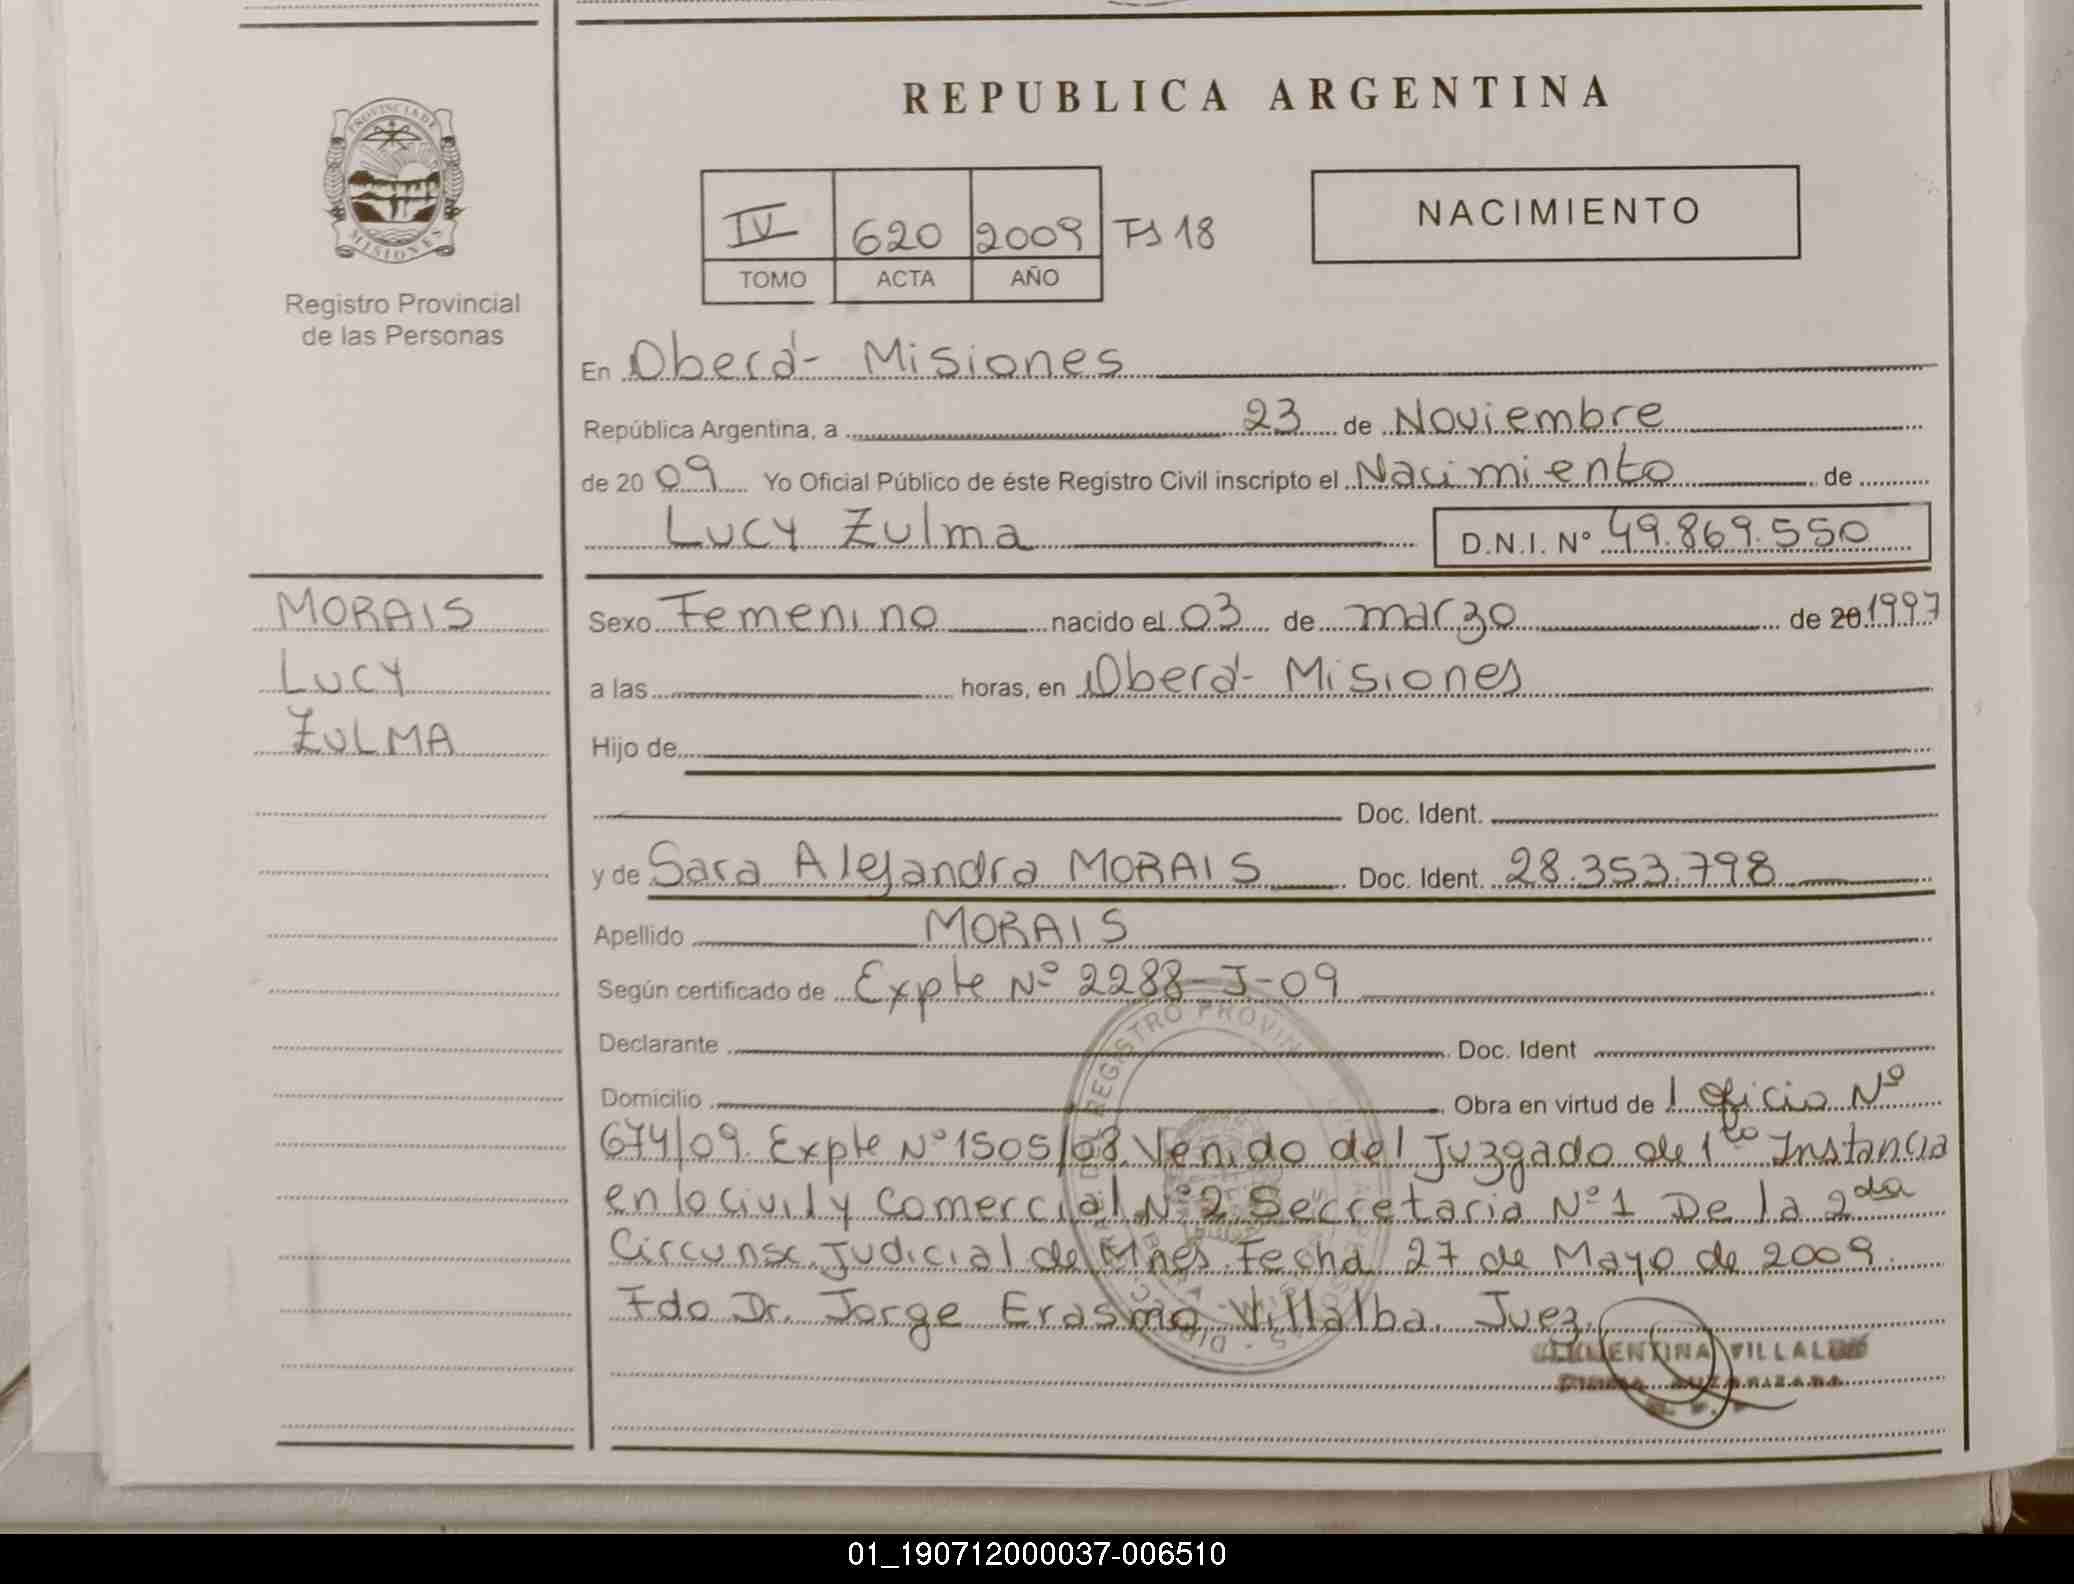 REPUBLICA ARGENTINA
PROVINCIA DE
MISIONES
Registro Provincial
de las Personas
IV 620 2009 Fs 18
TOMO ACTA AÑO
NACIMIENTO
En Oberá - Misiones
República Argentina, a 23 de Noviembre
de 2009 Yo Oficial Público de éste Registro Civil inscripto el Nacimiento de
Lucy Zulma D.N.I. N° 49.869.550
MORAIS
LUCY
ZULMA
Sexo Femenino nacido el 03 de marzo de 20 1997
a las horas, en Oberá - Misiones
Hijo de
Doc. Ident.
y de Sara Alejandra MORAIS Doc. Ident. 28.353.798
Apellido MORAIS
Según certificado de Expte Nº 2288-J-09
Declarante Doc. Ident
Domicilio Obra en virtud de 1 oficio Nº
674/09. Expte Nº 1505/08. Venido del Juzgado de 1ra Instancia
en lo civil y comercial Nº 2 Secretaria Nº 1 De la 2da
Circunsc. Judicial de Mnes. Fecha 27 de Mayo de 2009.
Fdo Dr. Jorge Erasmo Villalba. Juez.
REGISTRO PROVIN
VILLALBA
01_190712000037-006510